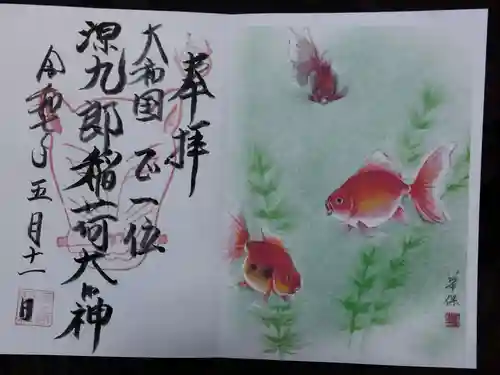 奉拝
大和国 正一位
源九郎稲荷大明神
令和七年五月十一日